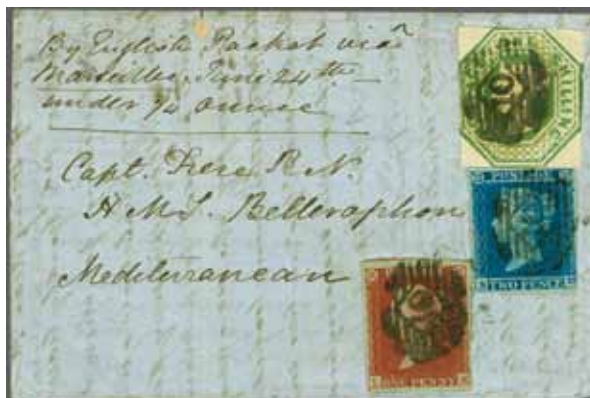 By English Packet via
Marseilles, June 24th
under 1/4 ounce
Capt. Frere R.N.
H M S. Bellerophon
Mediterranean
SHILLING
TWO PENCE
ONE PENNY